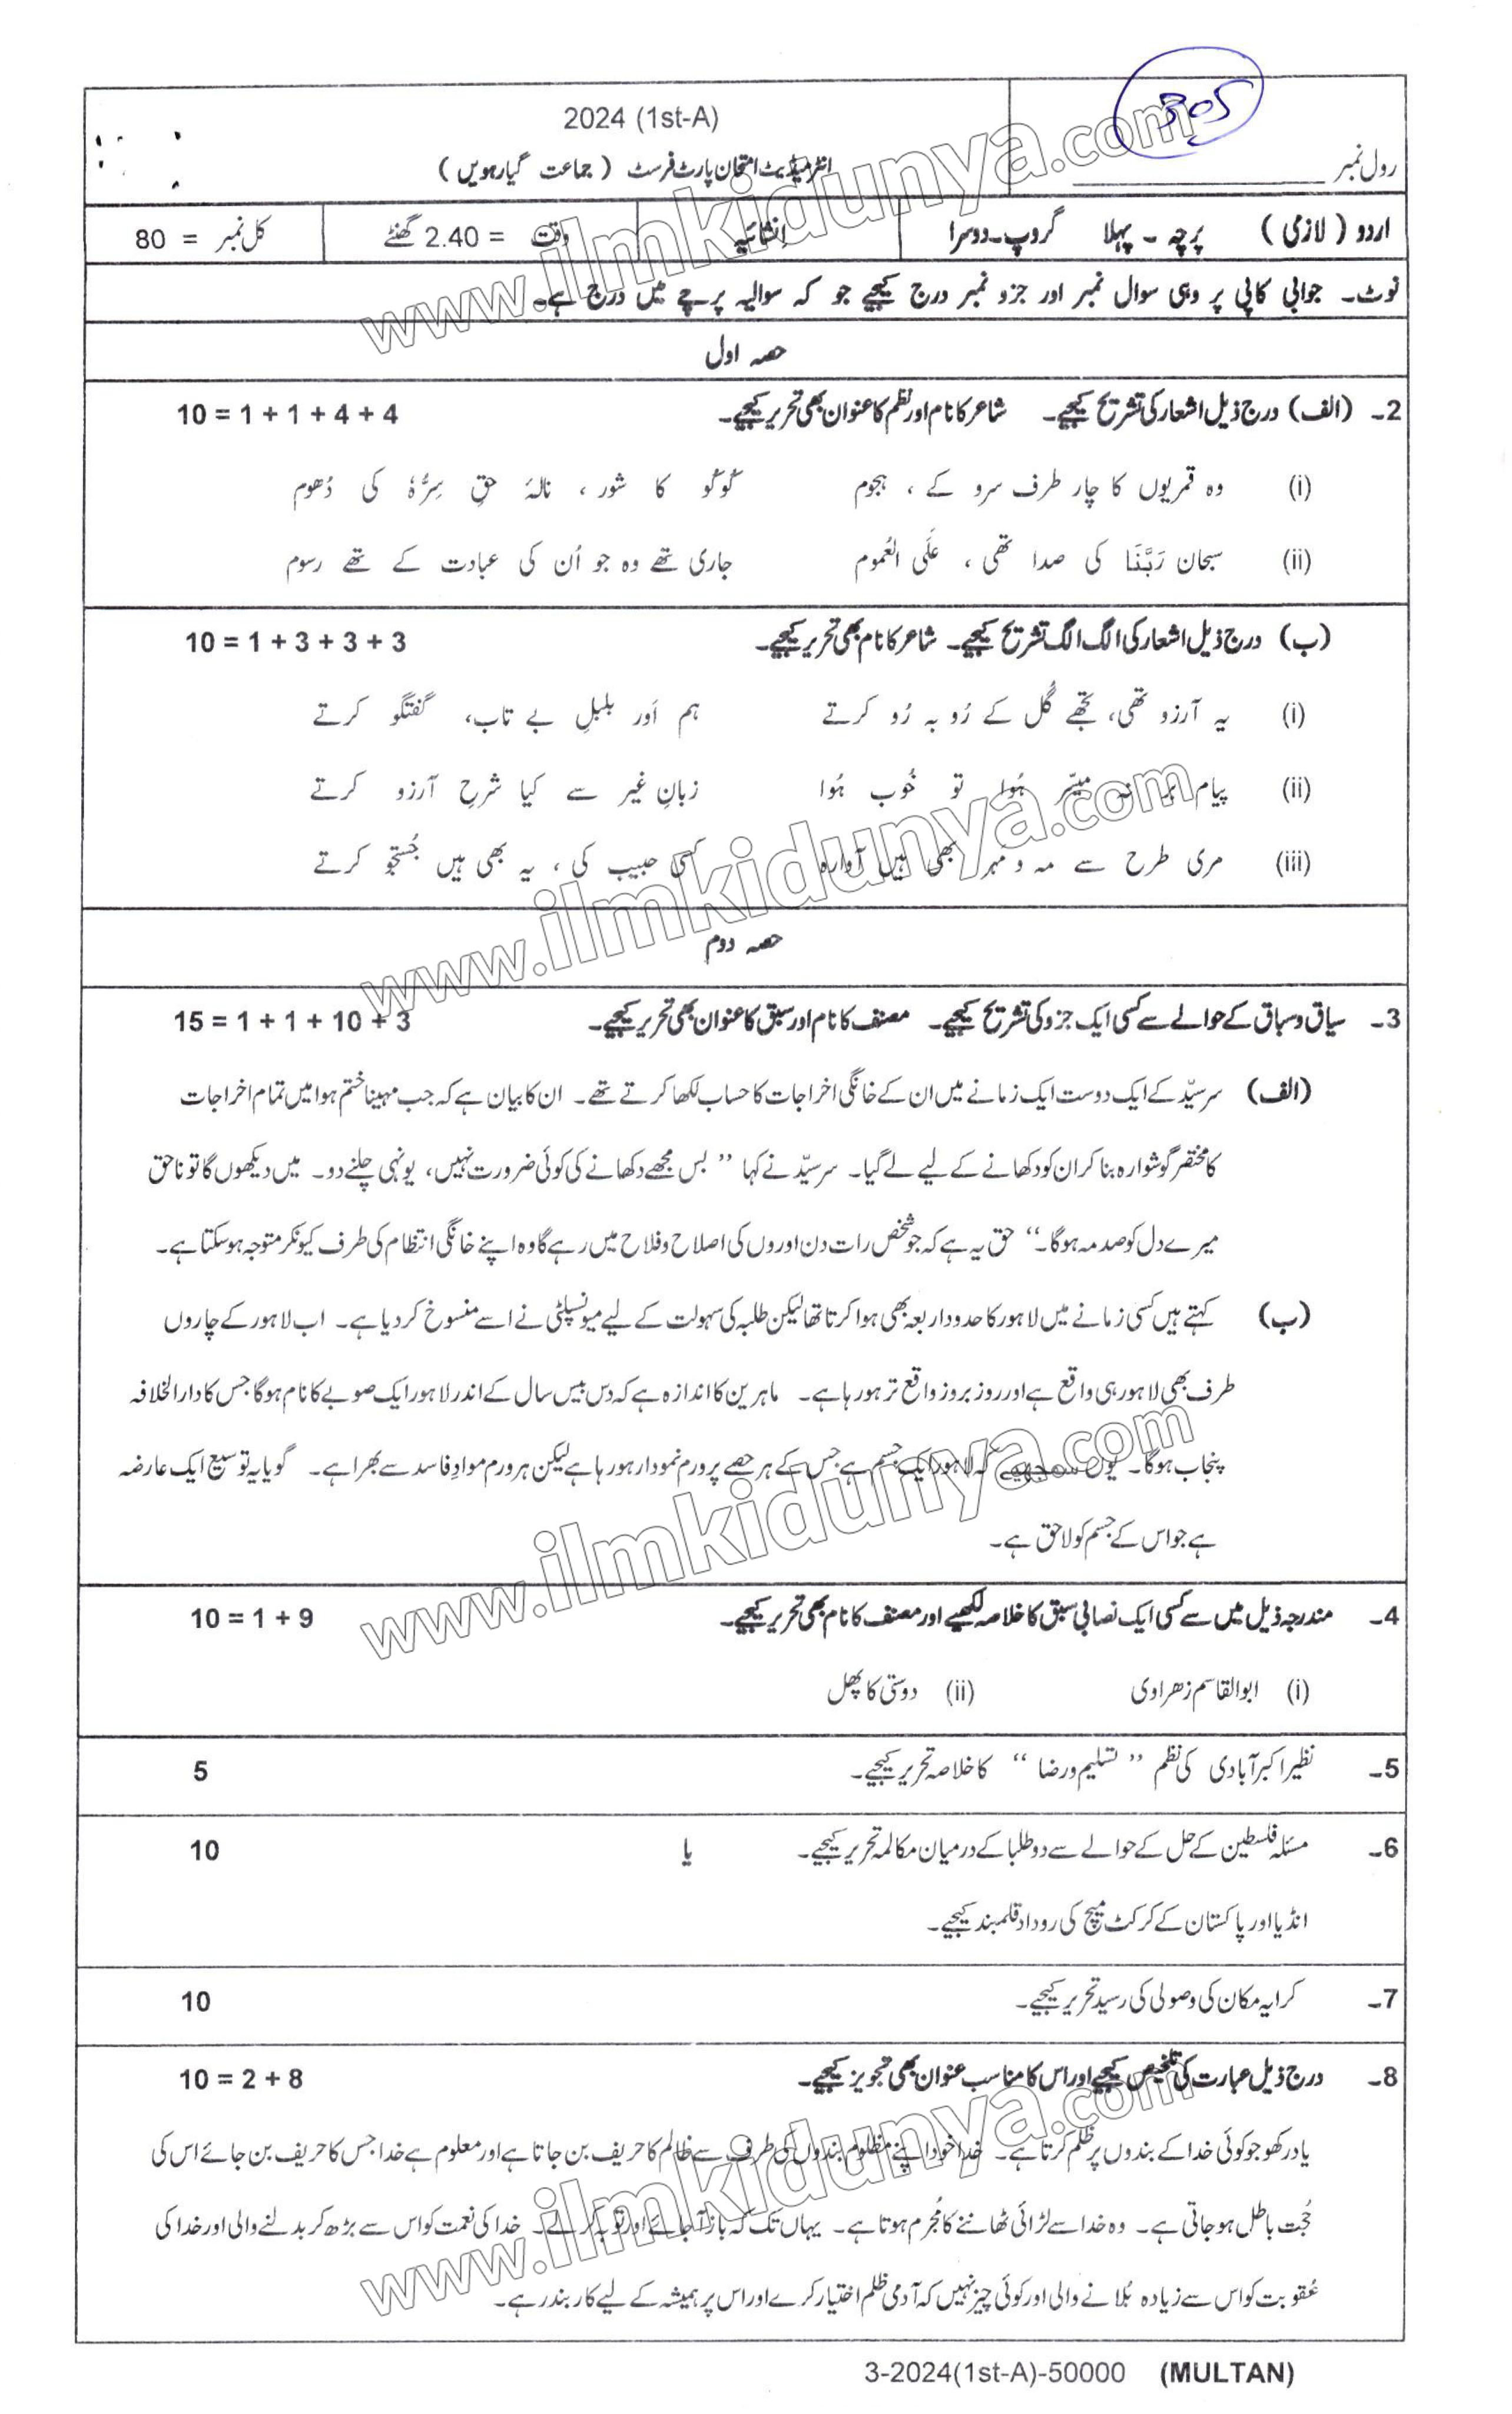 305
2024 (1st-A)
رول نمبر
انٹرمیڈیٹ امتحان پارٹ فرسٹ ( جماعت گیارہویں )
اردو ( لازمی ) پرچہ ۔ پہلا گروپ۔دوسرا
انشائیہ
وقت = 2.40 گھنٹے
کل نمبر = 80
نوٹ۔ جوابی کاپی پر وہی سوال نمبر اور جزو نمبر درج کیجیے جو کہ سوالیہ پرچے میں درج ہے۔
حصہ اول
2۔ (الف) درج ذیل اشعار کی تشریح کیجیے۔ شاعر کا نام اور نظم کا عنوان بھی تحریر کیجیے۔ 10 = 1 + 1 + 4 + 4
(i) وہ قمریوں کا چار طرف سرو کے ، ہجوم کُوکُو کا شور ، نالۂ حقِ سِرُّہٗ کی دُھوم
(ii) سبحان رَبَّنَا کی صدا تھی ، عَلَی العُموم جاری تھے وہ جو اُن کی عبادت کے تھے رسوم
(ب) درج ذیل اشعار کی الگ الگ تشریح کیجیے۔ شاعر کا نام بھی تحریر کیجیے۔ 10 = 1 + 3 + 3 + 3
(i) یہ آرزو تھی، تجھے گُل کے رُو بہ رُو کرتے ہم اَور بلبلِ بے تاب، گفتگو کرتے
(ii) پیام بر نہ میسّر ہُوا تو خُوب ہُوا زبانِ غیر سے کیا شرحِ آرزو کرتے
(iii) مری طرح سے مہ و مہر بھی ہیں آوارہ کسی حبیب کی ، یہ بھی ہیں جُستجو کرتے
حصہ دوم
3۔ سیاق و سباق کے حوالے سے کسی ایک جزو کی تشریح کیجیے۔ مصنف کا نام اور سبق کا عنوان بھی تحریر کیجیے۔ 15 = 1 + 1 + 10 + 3
(الف) سرسیّد کے ایک دوست ایک زمانے میں ان کے خانگی اخراجات کا حساب لکھا کرتے تھے۔ ان کا بیان ہے کہ جب مہینا ختم ہوا میں تمام اخراجات
کا مختصر گوشوارہ بنا کر ان کو دکھانے کے لیے لے گیا۔ سرسیّد نے کہا ’’ بس مجھے دکھانے کی کوئی ضرورت نہیں، یونہی چلنے دو۔ میں دیکھوں گا تو ناحق
میرے دل کو صدمہ ہوگا۔‘‘ حق یہ ہے کہ جو شخص رات دن اوروں کی اصلاح و فلاح میں رہے گا وہ اپنے خانگی انتظام کی طرف کیونکر متوجہ ہو سکتا ہے۔
(ب) کہتے ہیں کسی زمانے میں لاہور کا حدود اربعہ بھی ہوا کرتا تھا لیکن طلبہ کی سہولت کے لیے میونسپلٹی نے اسے منسوخ کر دیا ہے۔ اب لاہور کے چاروں
طرف بھی لاہور ہی واقع ہے اور روز بروز واقع تر ہو رہا ہے۔ ماہرین کا اندازہ ہے کہ دس بیس سال کے اندر لاہور ایک صوبے کا نام ہوگا جس کا دارالخلافہ
پنجاب ہوگا۔ یوں سمجھیے کہ لاہور ایک جسم ہے جس کے ہر حصے پر ورم نمودار ہو رہا ہے لیکن ہر ورم موادِ فاسد سے بھرا ہے۔ گویا یہ توسیع ایک عارضہ
ہے جو اس کے جسم کو لاحق ہے۔
4۔ مندرجہ ذیل میں سے کسی ایک نصابی سبق کا خلاصہ لکھیے اور مصنف کا نام بھی تحریر کیجیے۔ 10 = 1 + 9
(i) ابوالقاسم زھراوی (ii) دوستی کا پھل
5۔ نظیر اکبرآبادی کی نظم ’’ تسلیم و رضا ‘‘ کا خلاصہ تحریر کیجیے۔ 5
6۔ مسئلہ فلسطین کے حل کے حوالے سے دو طلبا کے درمیان مکالمہ تحریر کیجیے۔ یا 10
انڈیا اور پاکستان کے کرکٹ میچ کی روداد قلمبند کیجیے۔
7۔ کرایہ مکان کی وصولی کی رسید تحریر کیجیے۔ 10
8۔ درج ذیل عبارت کی تلخیص کیجیے اور اس کا مناسب عنوان بھی تجویز کیجیے۔ 10 = 2 + 8
یاد رکھو جو کوئی خدا کے بندوں پر ظلم کرتا ہے۔ خدا خود اپنے مظلوم بندوں کی طرف سے ظالم کا حریف بن جاتا ہے اور معلوم ہے خدا جس کا حریف بن جائے اس کی
حُجت باطل ہو جاتی ہے۔ وہ خدا سے لڑائی ٹھاننے کا مُجرم ہوتا ہے۔ یہاں تک کہ باز آ جائے اور توبہ کرلے۔ خدا کی نعمت کو اس سے بڑھ کر بدلنے والی اور خدا کی
عُقوبت کو اس سے زیادہ بُلانے والی اور کوئی چیز نہیں کہ آدمی ظلم اختیار کرے اور اس پر ہمیشہ کے لیے کاربند رہے۔
3-2024(1st-A)-50000 (MULTAN)
www.ilmkidunya.com
www.ilmkidunya.com
www.ilmkidunya.com
www.ilmkidunya.com